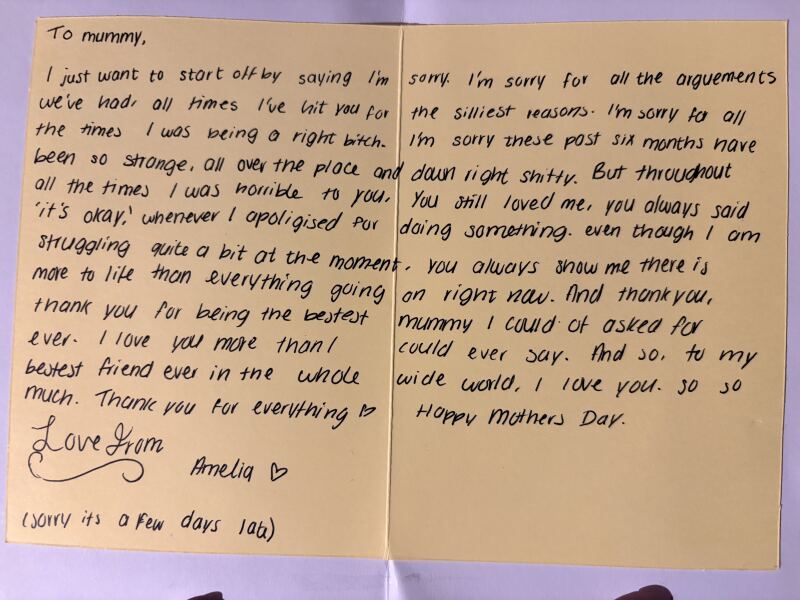 To mummy,
I just want to start off by saying I'm sorry. I'm sorry for all the arguements
we've had, all times I've hit you for the silliest reasons. I'm sorry for all
the times I was being a right bitch. I'm sorry these past six months have
been so strange, all over the place and down right shitty. But throughout
all the times I was horrible to you, You still loved me, you always said
'it's okay,' whenever I apoligised for doing something. even though I am
struggling quite a bit at the moment, you always show me there is
more to life than everything going on right now. And thankyou,
thank you for being the bestest mummy I could of asked for
ever. I love you more than I could ever say. And so, to my
bestest friend ever in the whole wide world, I love you. so so
much. Thank you for everything ♡ Happy Mothers Day.
Love From
Amelia ♡
(sorry its a few days late)